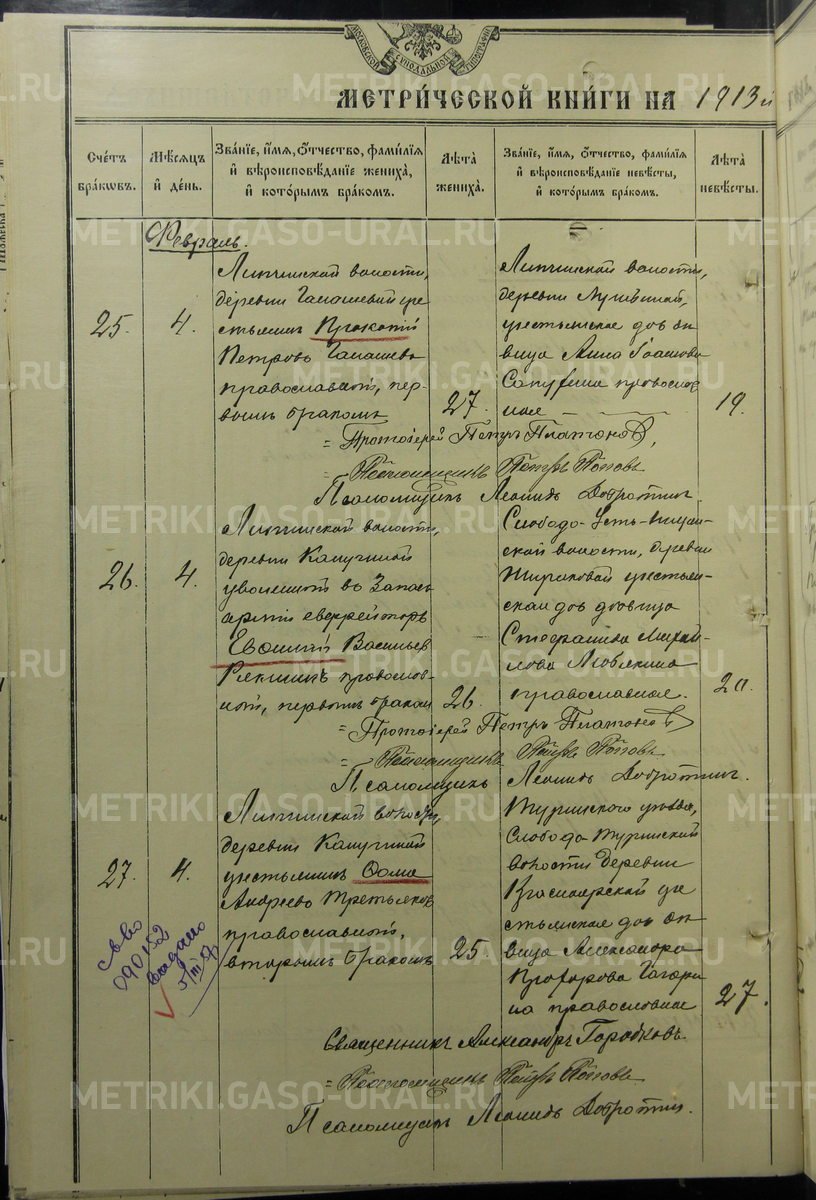 МОСКОВСКОЙ СИНОДАЛЬНОЙ ТИПОГРАФИИ
МЕТРИ́ЧЕСКОЙ КНИ́ГИ НА 1913й
Счéтъ бра́кωвъ.
Мѣ́сяцъ и҆ де́нь.
Зва́нїе, и҆́мя, ѻ҆́тчество, фами́лїя и҆ вѣроисповѣ́данїе жениха̀, и҆ кото́рымъ бра́комъ.
Лѣ́та жениха̀.
Зва́нїе, и҆́мя, ѻ҆́тчество, фами́лїя и҆ вѣроисповѣ́данїе невѣ́сты, и҆ кото́рымъ бра́комъ.
Лѣ́та невѣ́сты.
Февраль.
25.
4.
Липчинской волости,
деревни Галашевой кре
стьянинъ Прокопiй
Петровъ Галашевъ
православный, пер-
вымъ бракомъ
27.
Липчинской волости,
деревни
крестьянская дѣв ѣи
вица Анна Iоаннова
православ
ная
19.
= Протоiерей Петръ Платоновъ,
= Петръ Поповъ
Псаломщикъ Леонидъ Добротинъ
26.
4.
Липчинской волости,
деревни Калугиной
уволенный въ запасъ
армiи ефрейторъ
Евфимiй Васильев
православ-
ный, первымъ бракомъ
26.
Слободо-Усть-Ницин-
ской волости, деревни
Жиряковой крестьян-
ская дѣвица
Стефанида Михай-
лова
православная.
20.
= Протоiерей Петръ Платоновъ
= Петръ Поповъ
Псаломщикъ Леонидъ Добротинъ.
27.
4.
Липчинской волости,
деревни Калугиной
крестьянинъ Ѳома
Андреевъ Третьяковъ
православный,
вторымъ бракомъ
25.
Туринского уѣзда,
Слободо-Туринской
волости деревни
Красноярской кре
стьянская дѣв
вица Александра
Прохорова Гагари
на православная
27.
св-во
090152
выдано
5/III 57
Священникъ Александръ Горбковъ.
= Петръ Поповъ
Псаломщикъ Леонидъ Добротинъ.
METRIKI.GASO-URAL.RU